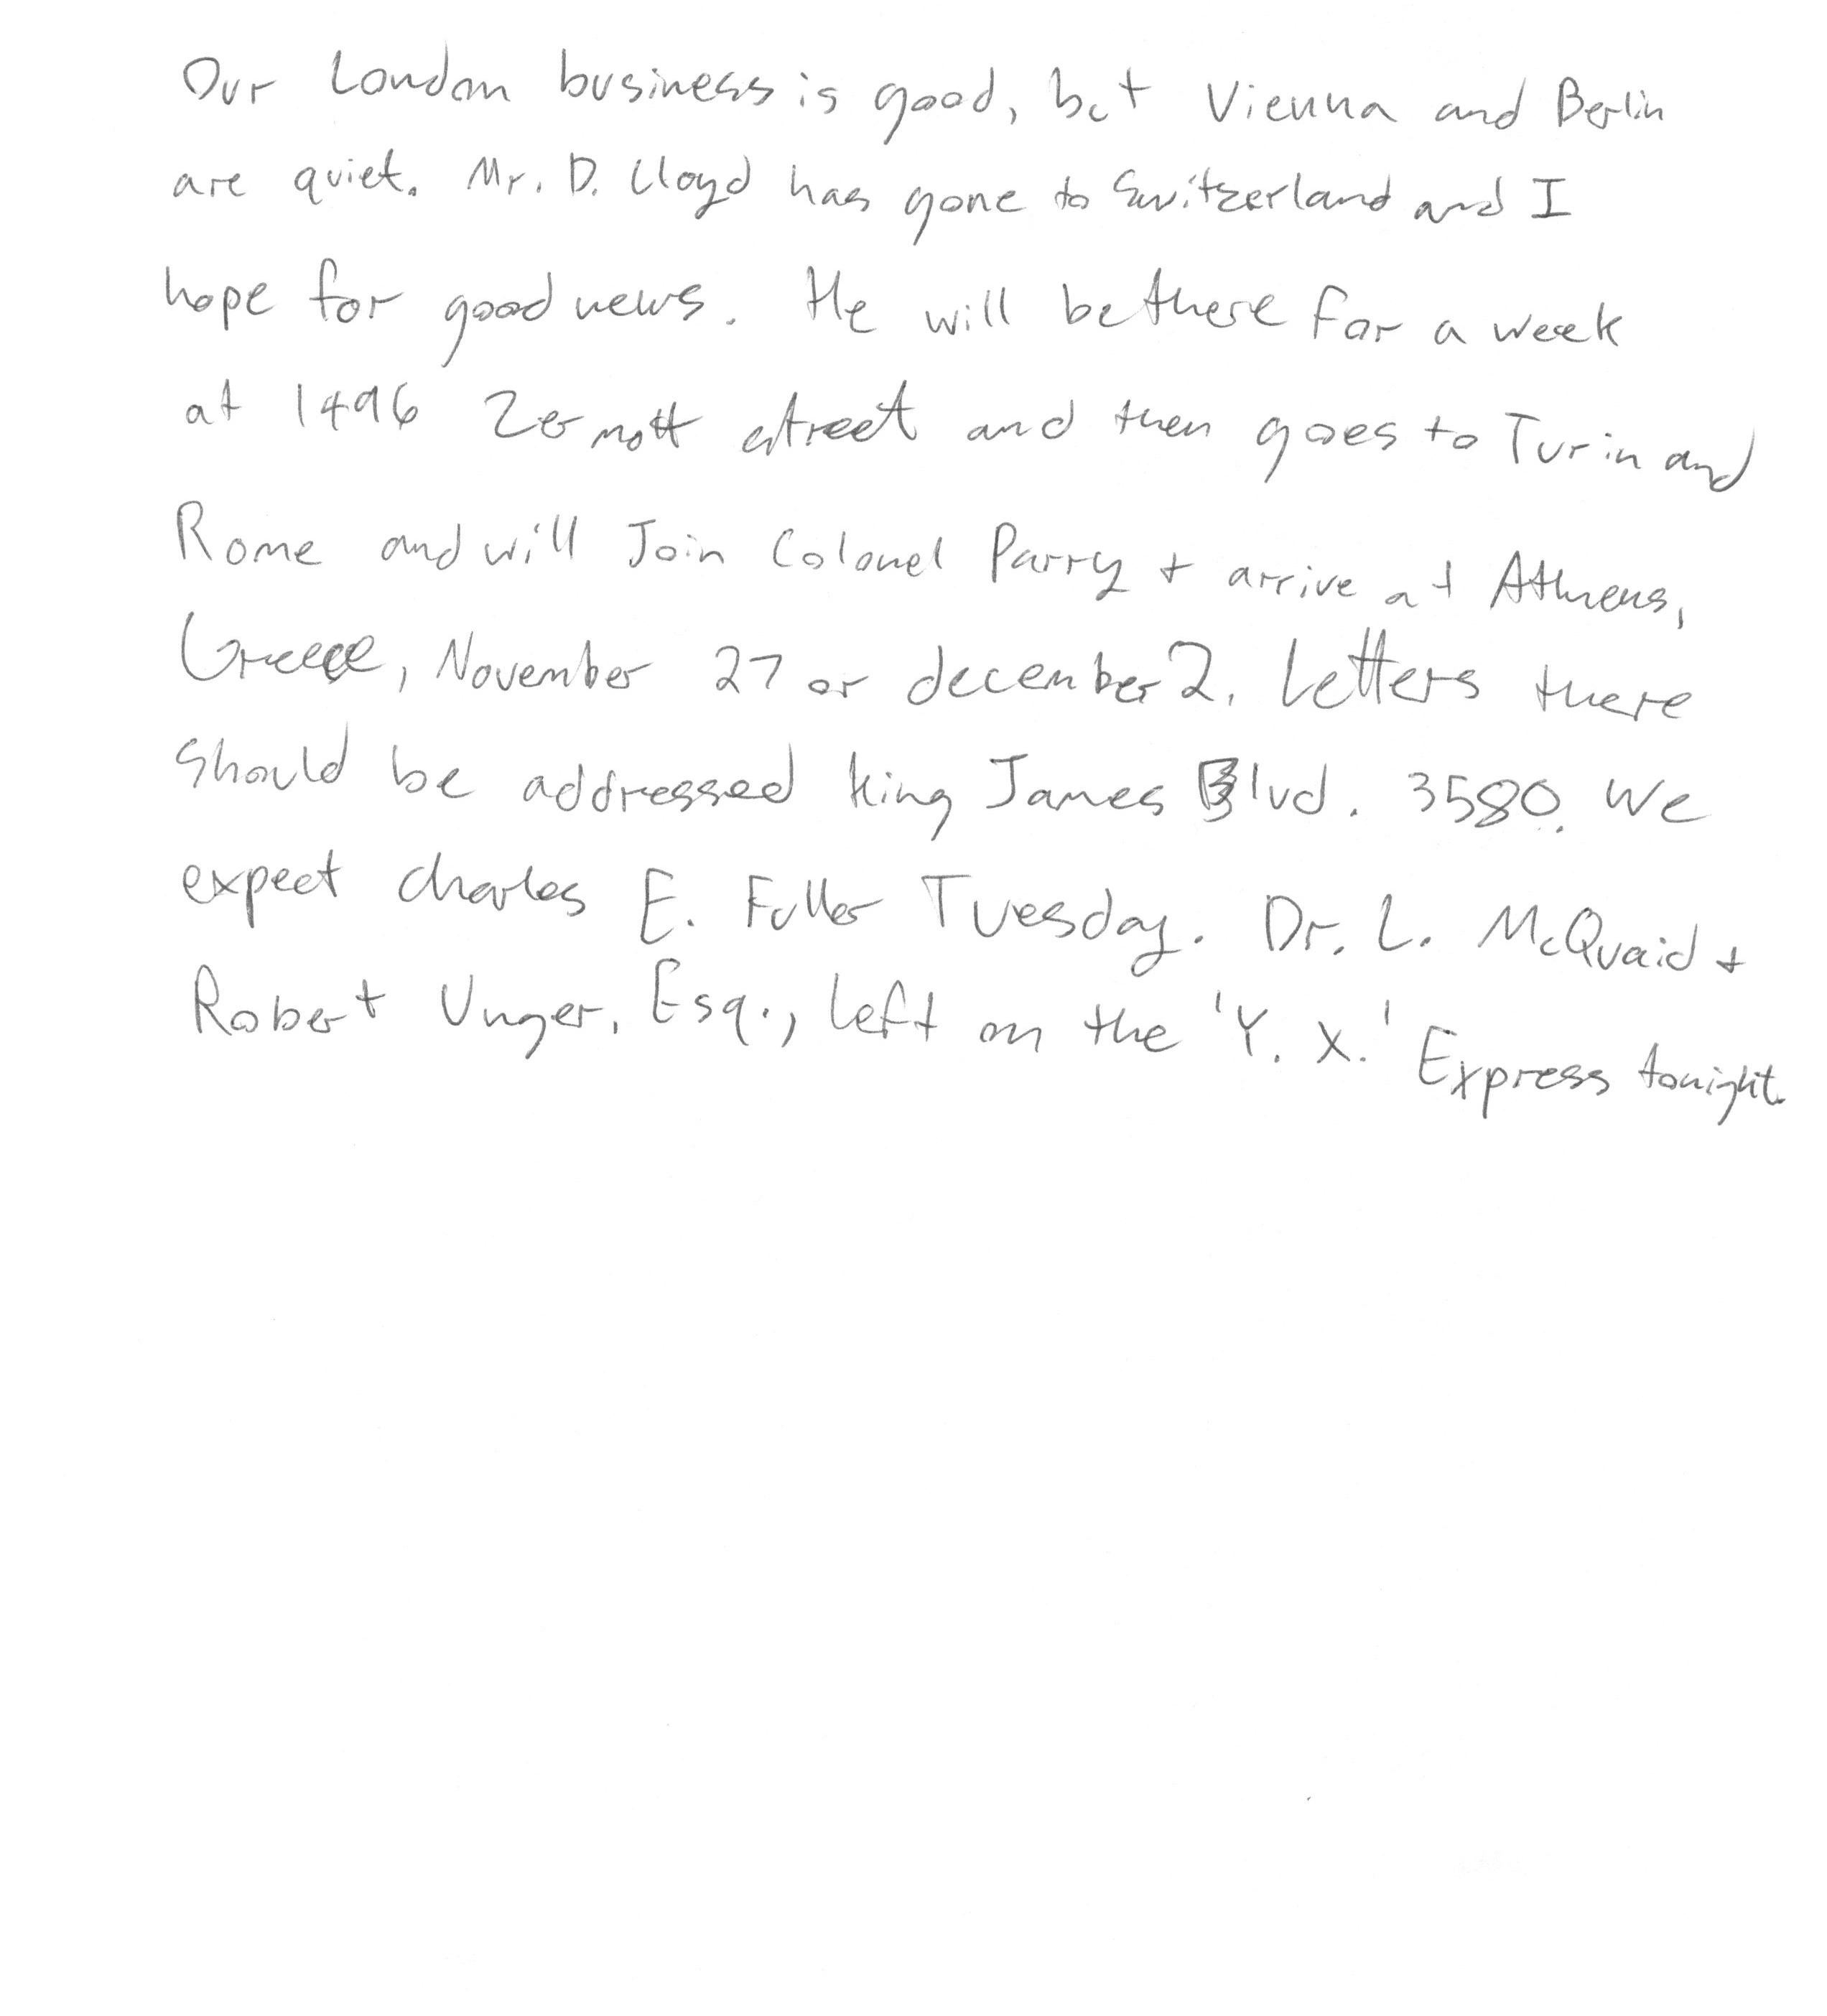 Our London business is good, but Vienna and Berlin
are quiet. Mr. D. Lloyd has gone to Switzerland and I
hope for good news. He will be there for a week
at 1496 Zermott street and then goes to Turin and
Rome and will Join Colonel Parry + arrive at Athens,
Greece, November 27 or december 2. Letters there
Should be addressed King James Blvd. 3580. We
expect charles E. Fuller Tuesday. Dr. L. McQuaid +
Robert Unger, Esq., left on the 'Y. X.' Express tonight.